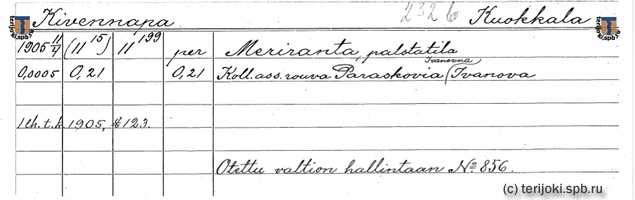 Kivennapa 232 b Kuokkala
1906 11/7 (11 15) 11 199 per Meriranta, palstatila
0,0005 0,21 0,21 Koll. ass. rouva Paraskovia Ivanovna Ivanova
lh. t. k. 1905, § 123.
Otettu valtion hallintaan № 856.
(c) terijoki.spb.ru